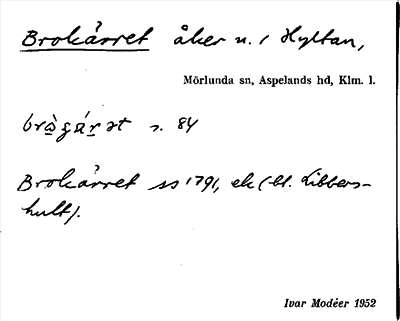 Brokärret åker n. i Hyltan,
Mörlunda sn, Aspelands hd, Klm. l.
s. 84
Brokärret ss 1791, ek (bl. Libbers-
hult).
Ivar Modéer 1952